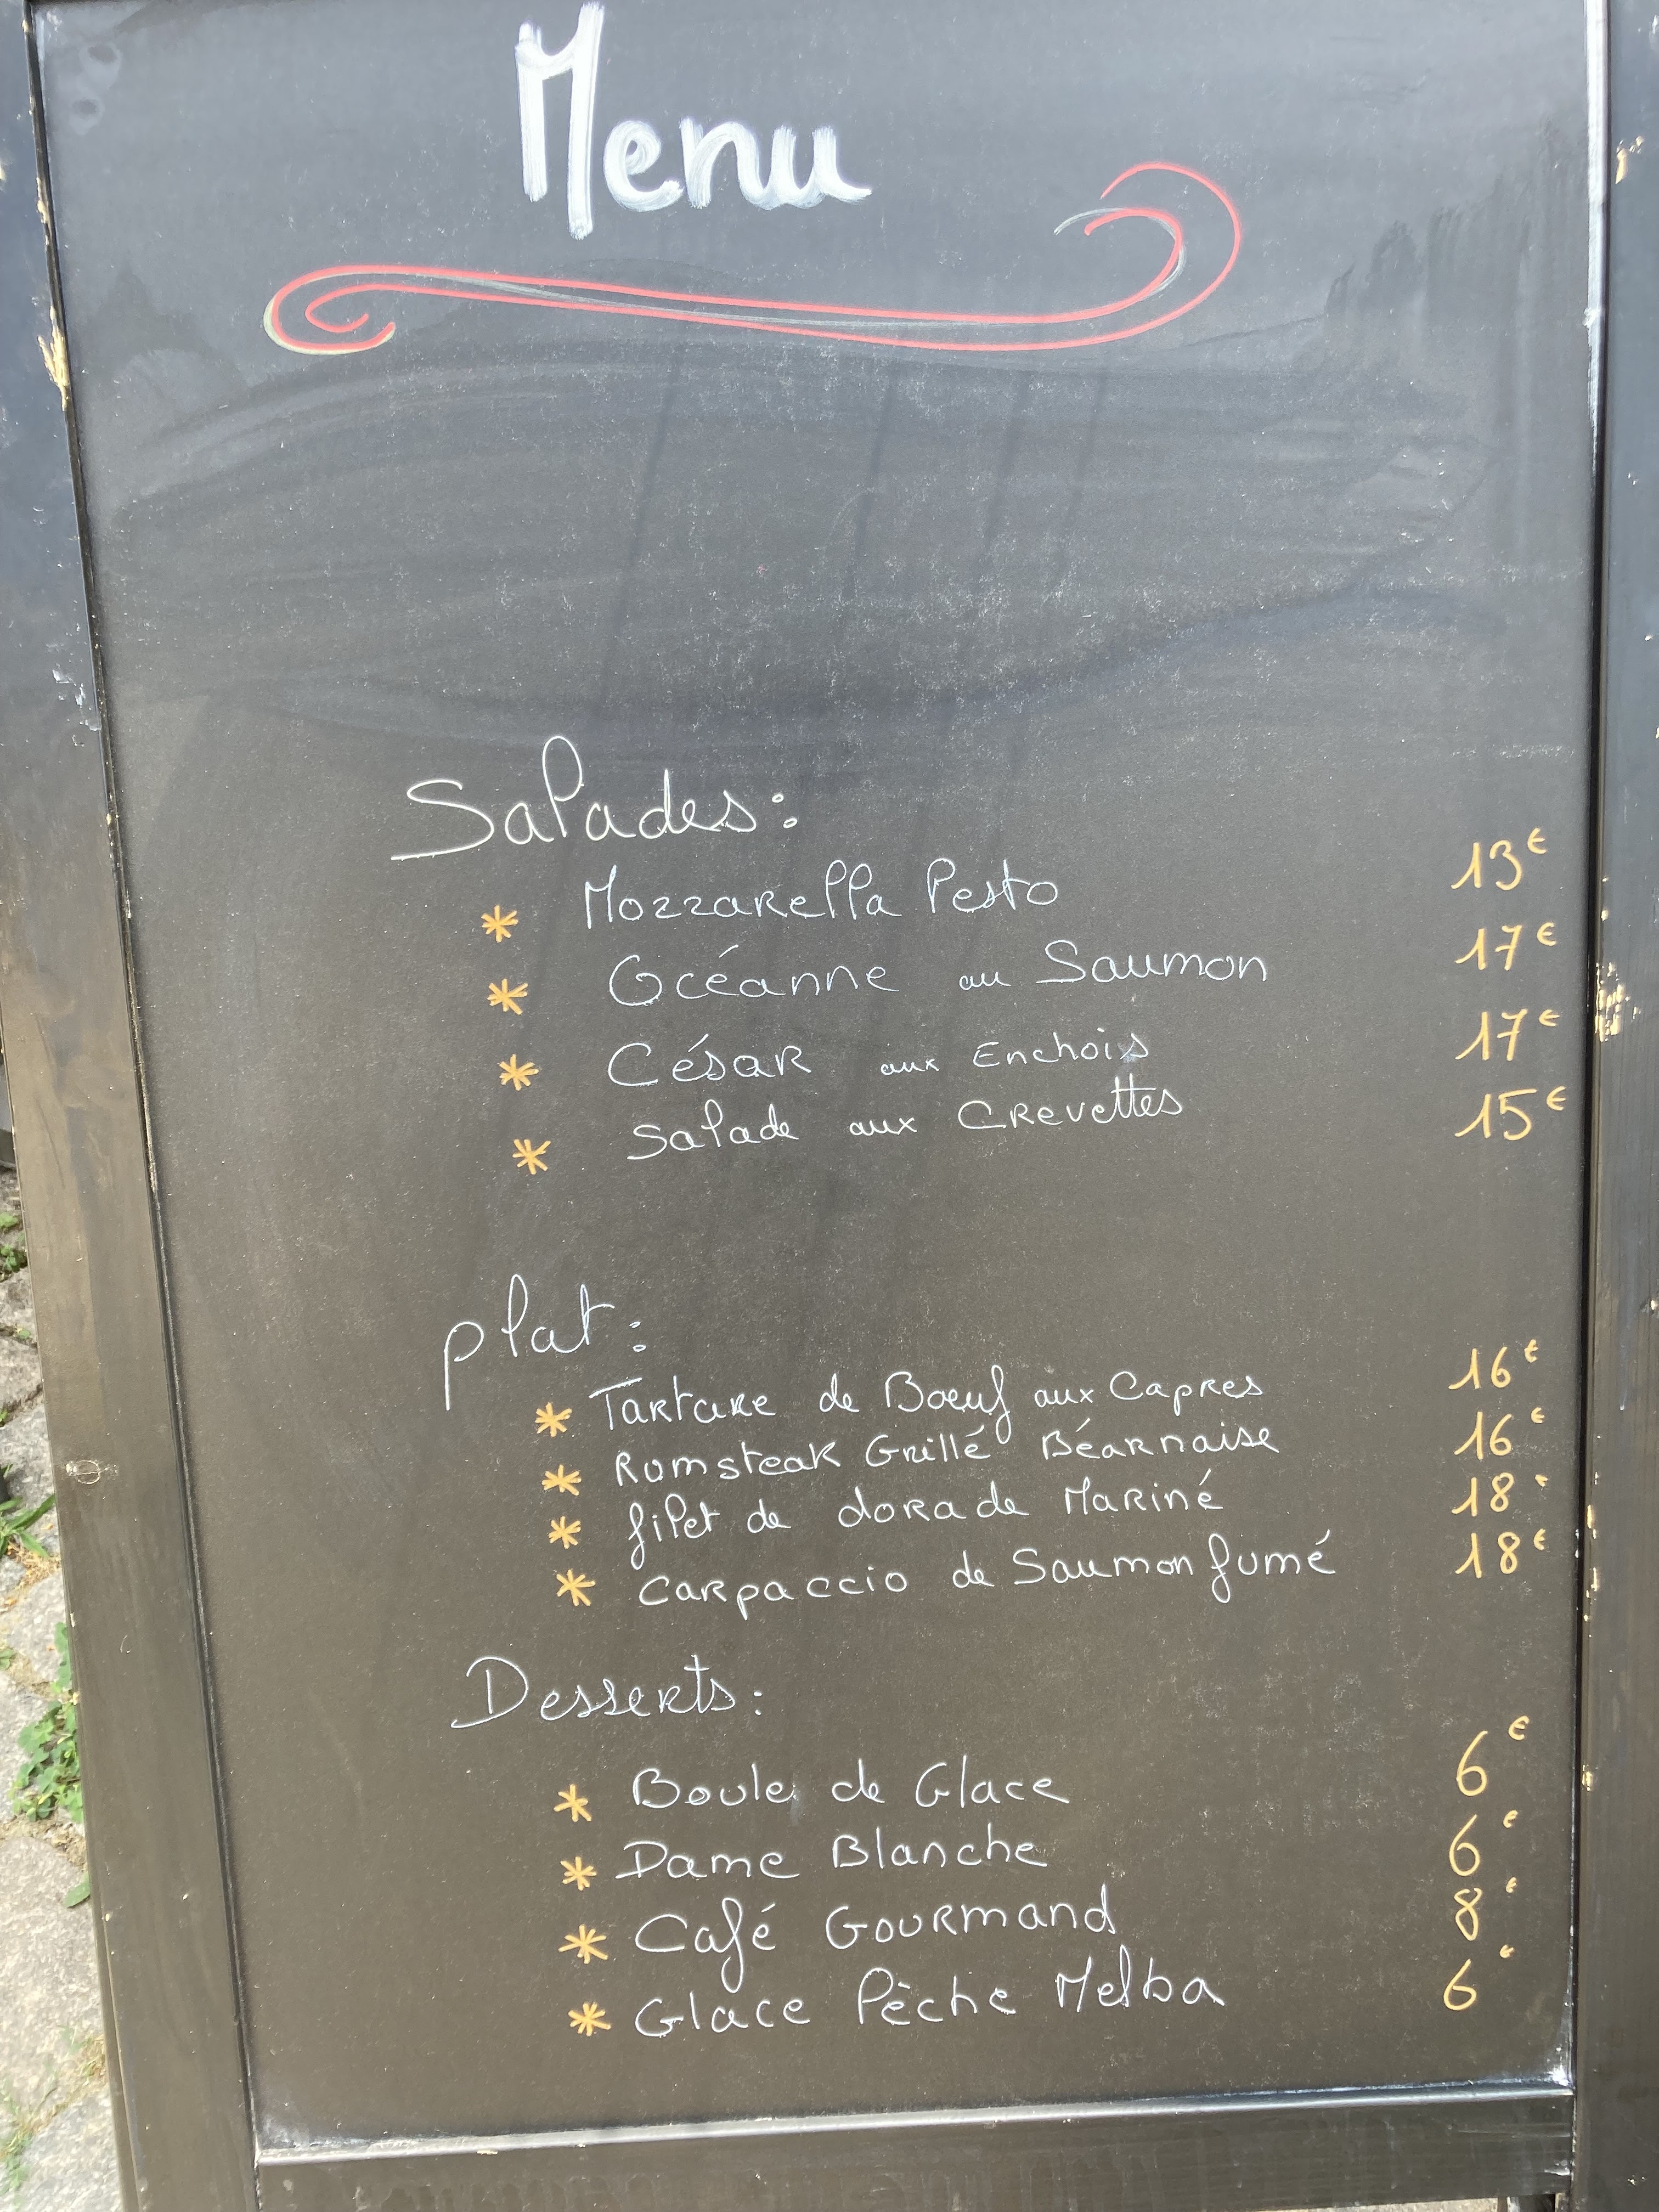 Menu
Salades:
* Mozzarella Pesto 13€
* Océanne au Saumon 17€
* César aux Enchois 17€
* Salade aux Crevettes 15€
plat:
* Tartare de Bœuf aux Capres 16€
* Rumsteak Grillé Béarnaise 16€
* filet de dorade Mariné 18€
* Carpaccio de Saumon fumé 18€
Desserts:
* Boule de Glace 6€
* Dame Blanche 6€
* Café Gourmand 8€
* Glace Pèche Melba 6€